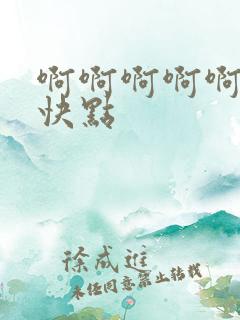 啊啊啊啊啊
快點
徐成進
未经同意禁止转载